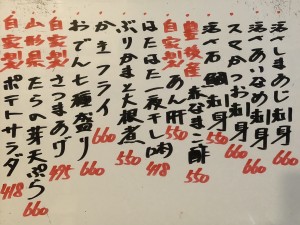 活〆しまあじ刺身 660
活〆あいなめ刺身 660
スマかつお刺身 660
活〆石鯛刺身 550
豊後産 赤なまこ酢 550
自家製 あん肝 660
はたはた一夜干し 418
ぶりかまと大根煮 550
かきフライ 660
おでん七種盛り 660
自家製 さつまあげ 495
山形県 たらの芽天ぷら 660
自家製 ポテトサラダ 418